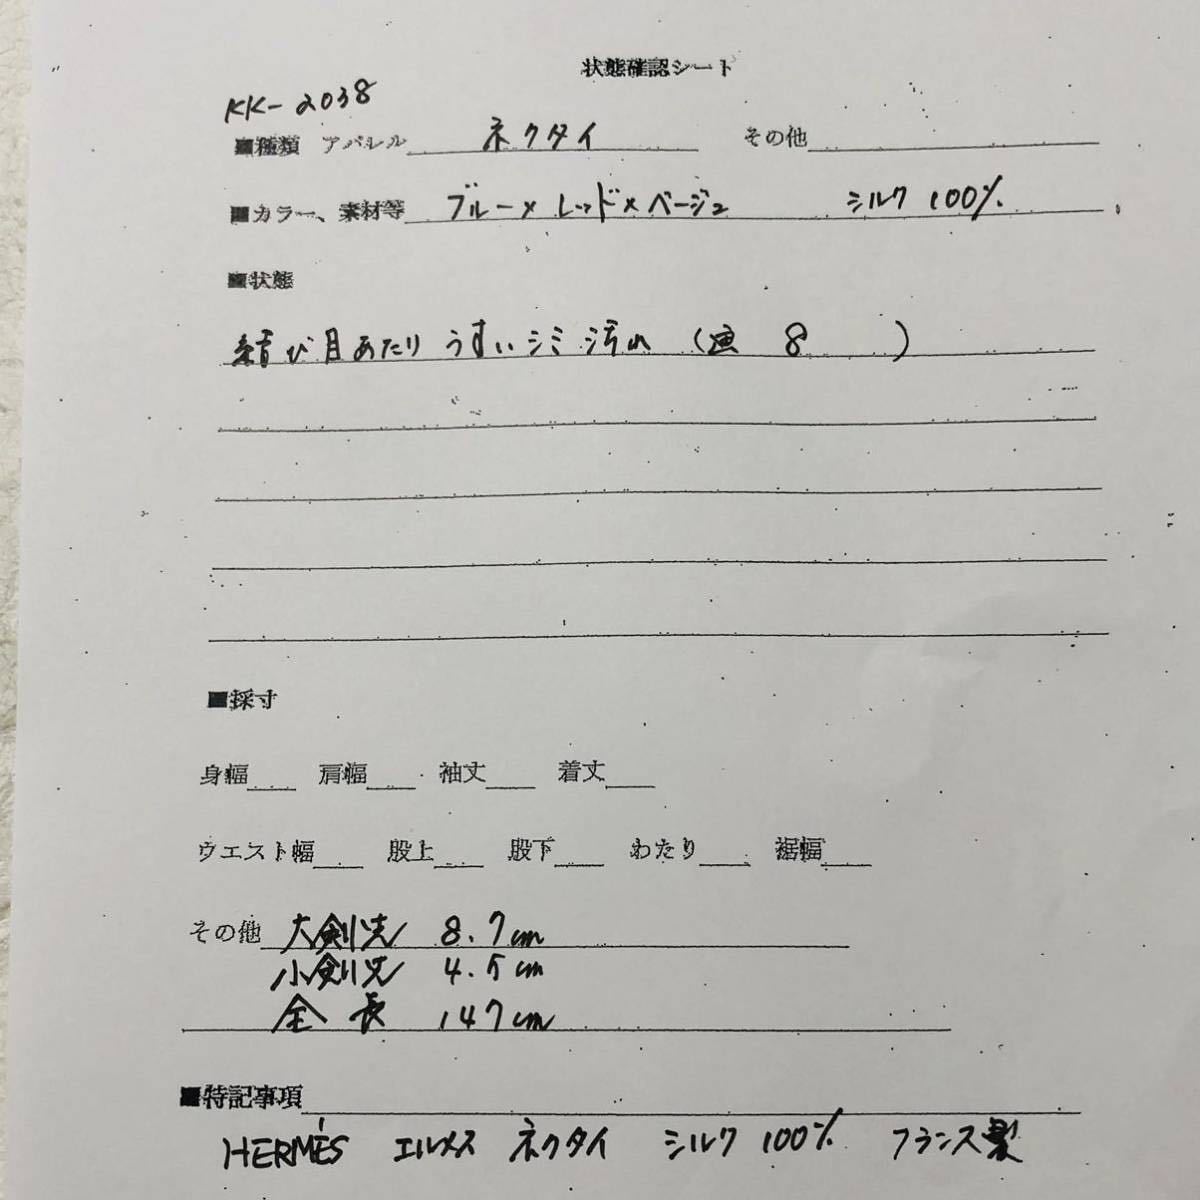 状態確認シート
KK-2038
■種類 アパレル ネクタイ その他
■カラー、素材等 ブルー×レッド×ベージュ シルク100%
■状態
結び目あたり うすいシミ汚れ ( 8 )
■採寸
身幅 肩幅 袖丈 着丈
ウエスト幅 股上 股下 わたり 裾幅
その他 大剣先 8.7cm
小剣先 4.5cm
全長 147cm
■特記事項
HERMÈS エルメス ネクタイ シルク100% フランス製